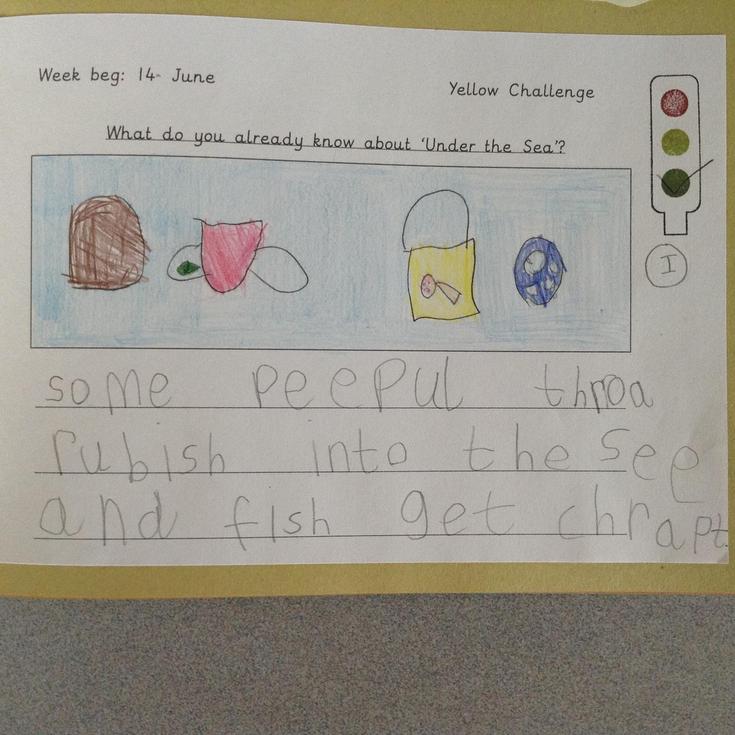 Week beg: 14- June
Yellow Challenge
What do you already know about 'Under the Sea'?
I
some peepul throa
rubish into the see
and fish get chrapt